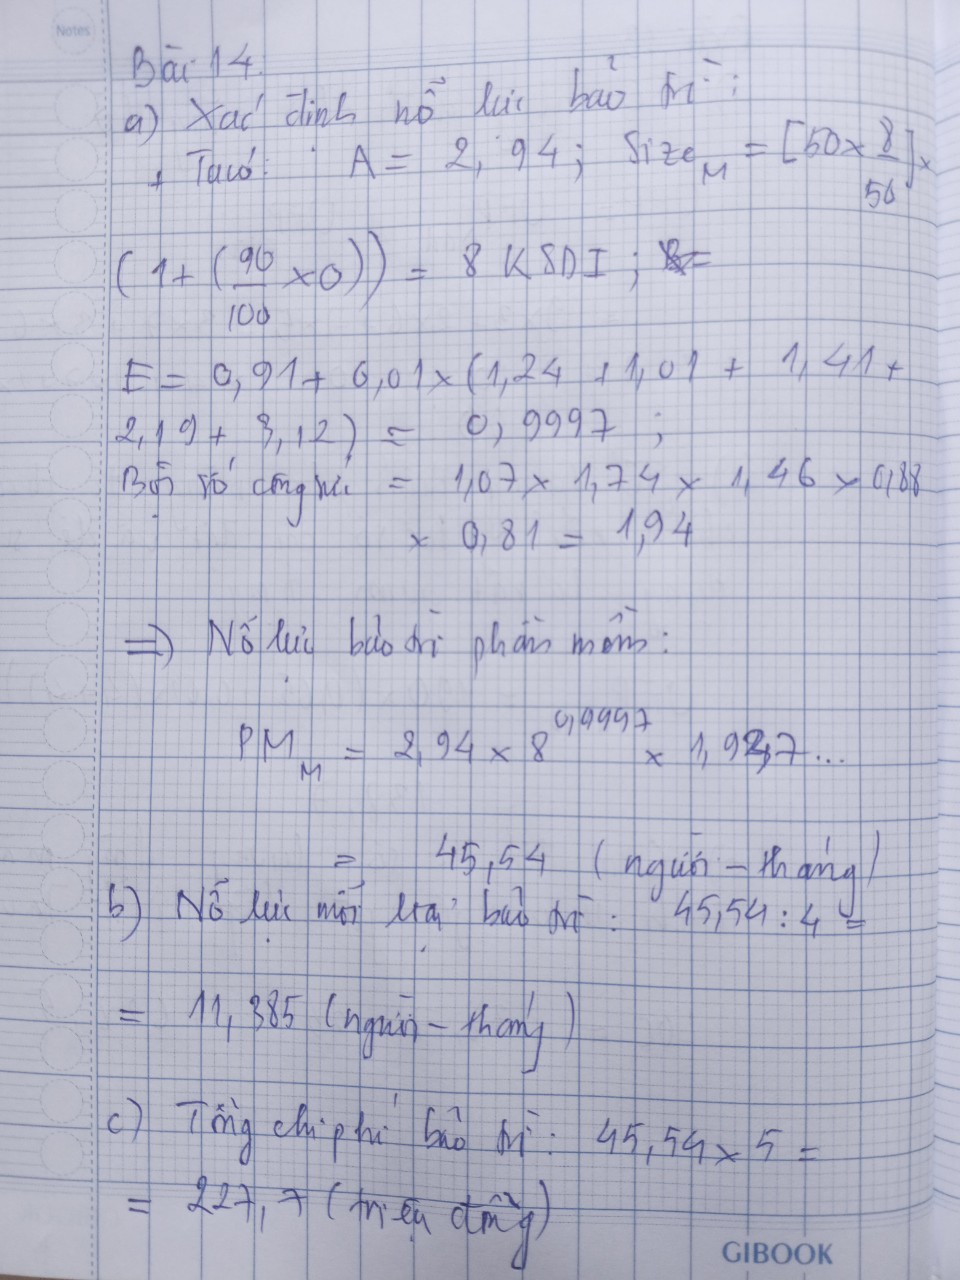 Notes
Bài 14.
a) Xác định nỗ lực bảo trì:
+ Ta có: A = 2,94; Size_M = [50 × 8/50] ×
(1 + (90/100 × 0)) = 8 KSDI;
E = 0,91 + 0,01 × (1,24 + 1,01 + 1,41 +
2,19 + 3,12) = 0,9997;
= 1,07 × 1,74 × 1,46 × 0,88
× 0,81 = 1,94
=> Nỗ lực bảo trì phần mềm:
PM_M = 2,94 × 8^0,9997 ×
= 45,54 (người - tháng)
b) Nỗ lực mỗi bảo trì: 45,54 : 4 =
= 11,385 (người - tháng)
c) Tổng chi phí bảo trì: 45,54 × 5 =
= 227,7 (triệu đồng)
GIBOOK